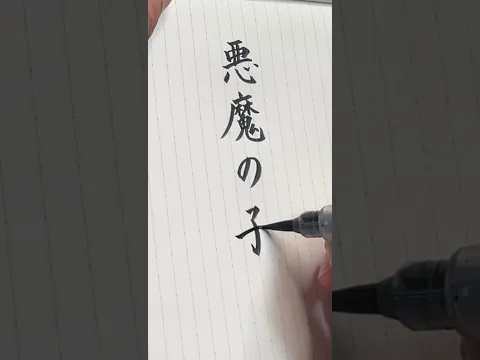 悪魔の子